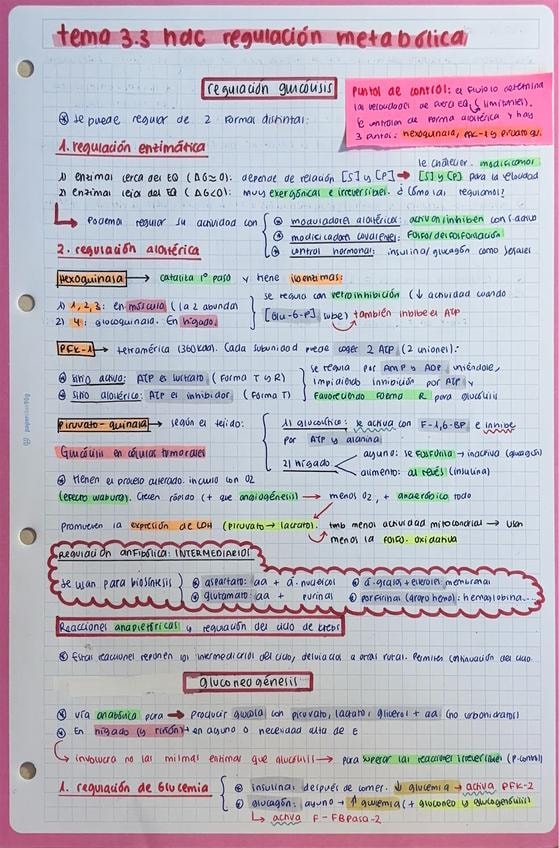 tema 3.3 hdc regulación metabólica
regulación glucólisis
Puntos de control: el flujo lo determina
la velocidad de fuera EQ (limitantes).
Se controlan de forma alostérica y hay
3 puntos: hexoquinasa, PFK-1 y piruvato qui.
Se puede regular de 2 formas distintas:
1. regulación enzimática
le cambiemos. modificamos
1) enzimas cerca del EQ (ΔG≈0): depende de relación [S] y [P] → [S] y [P] para la velocidad
2) enzimas lejos del EQ (ΔG<0): muy exergónicas e irreversibles. ¿Cómo las regulamos?
Podemos regular su actividad con
moduladores alostéricos: activan/inhiben centro activo
modificadores covalentes: fosfo/desfosforilación
control hormonal: insulina/glucagón como señales
2. regulación alostérica
Hexoquinasa → cataliza 1º paso y tiene isoenzimas:
1) 1, 2, 3: en músculo (la 2 abunda)
2) 4: glucoquinasa. En hígado.
se regula con retroinhibición (↓ actividad cuando
[Glu-6-P] sube) también inhibe el ATP
PFK-1 → tetramérica (360kda). Cada subunidad puede coger 2 ATP (2 uniones):
sitio activo: ATP es sustrato (forma T y R)
sitio alostérico: ATP es inhibidor (forma T)
se regula por AMP y ADP uniéndose,
impidiendo inhibición por ATP y
favoreciendo forma R para glucólisis
Piruvato-quinasa → según el tejido:
1) glucolítica: se activa con F-1,6-BP e inhibe
por ATP y alanina
2) hígado
ayuno: se fosforila → inactiva (glucagón)
alimento: al revés (insulina)
Glucólisis en células tumorales
tienen el proceso alterado. incluso con O2
(efecto warburg). Crecen rápido (+ que angiogénesis) → menos O2, + anaeróbico todo
promueven la expresión de LDH (piruvato → lactato). tmb menos actividad mitocondrial → usan
menos la fosfo. oxidativa
REGULACIÓN ANFIBÓLICA: INTERMEDIARIOS
se usan para biosíntesis
aspartato: aa + á. nucleicos
glutamato: aa + purinas
á. grasos + esteroles: membranas
porfirinas (grupo hemo): hemoglobina...
Reacciones anapleróticas y regulación del ciclo de krebs
Estas reacciones reponen los intermediarios del ciclo, desviados a otras rutas. Permiten continuación del ciclo.
gluconeogénesis
vía anabólica para → producir glucosa con piruvato, lactato, glicerol + aa (no carbohidratos)
En hígado (y riñón) en ayuno o necesidad alta de E
involucra no las mismas enzimas que glucólisis → para superar las reacciones irreversibles (p.control)
1. regulación de Glucemia
insulina: después de comer. ↓ glucemia → activa PFK-2
glucagón: ayuno → ↑ glucemia (+ gluconeo y glucogenólisis)
activa F-FBPasa-2